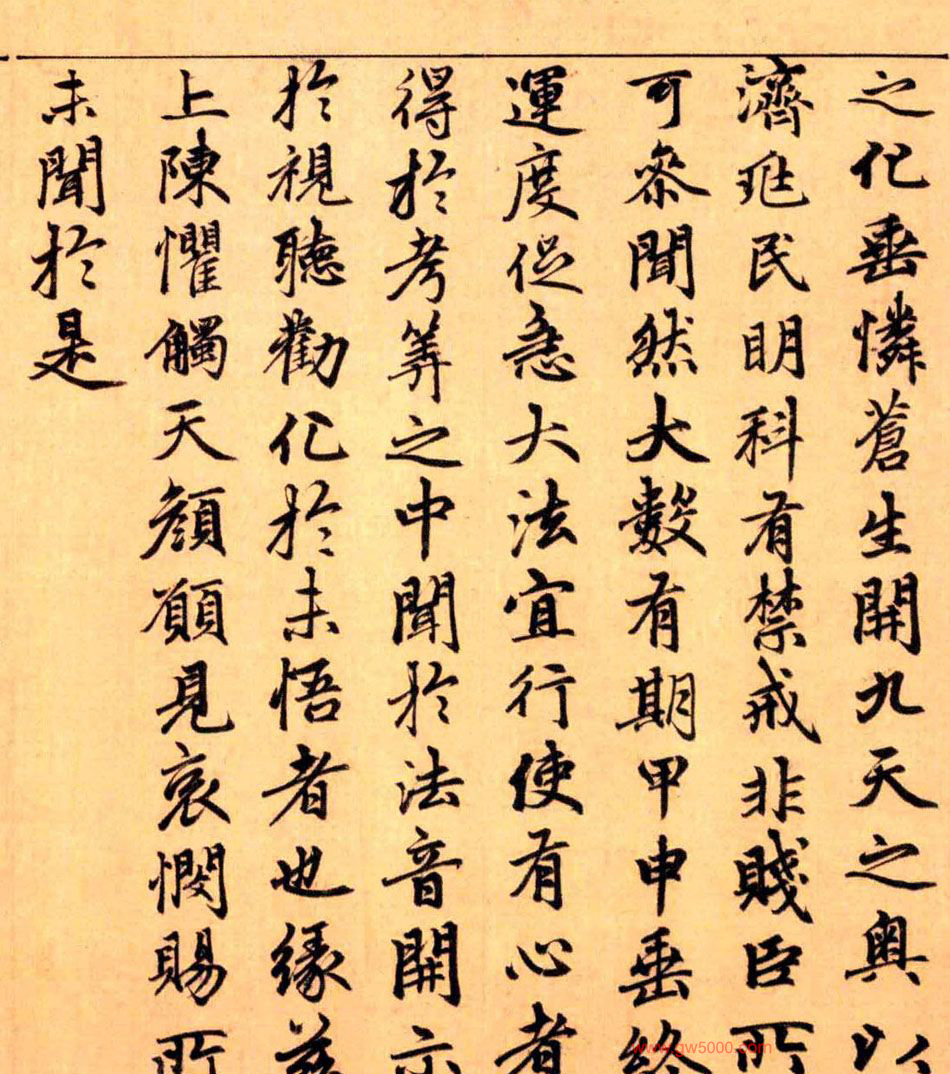 之化垂憐蒼生開九天之奧以
濟兆民明科有禁戒非賤臣所
可參聞然大數有期甲申垂終
運度促急大法宜行使有心者
得於考筭之中聞於法音開示
於視聽勸化於未悟者也緣茲
上陳懼觸天顏願見哀憫賜所
未聞於是
www.gw5000.com